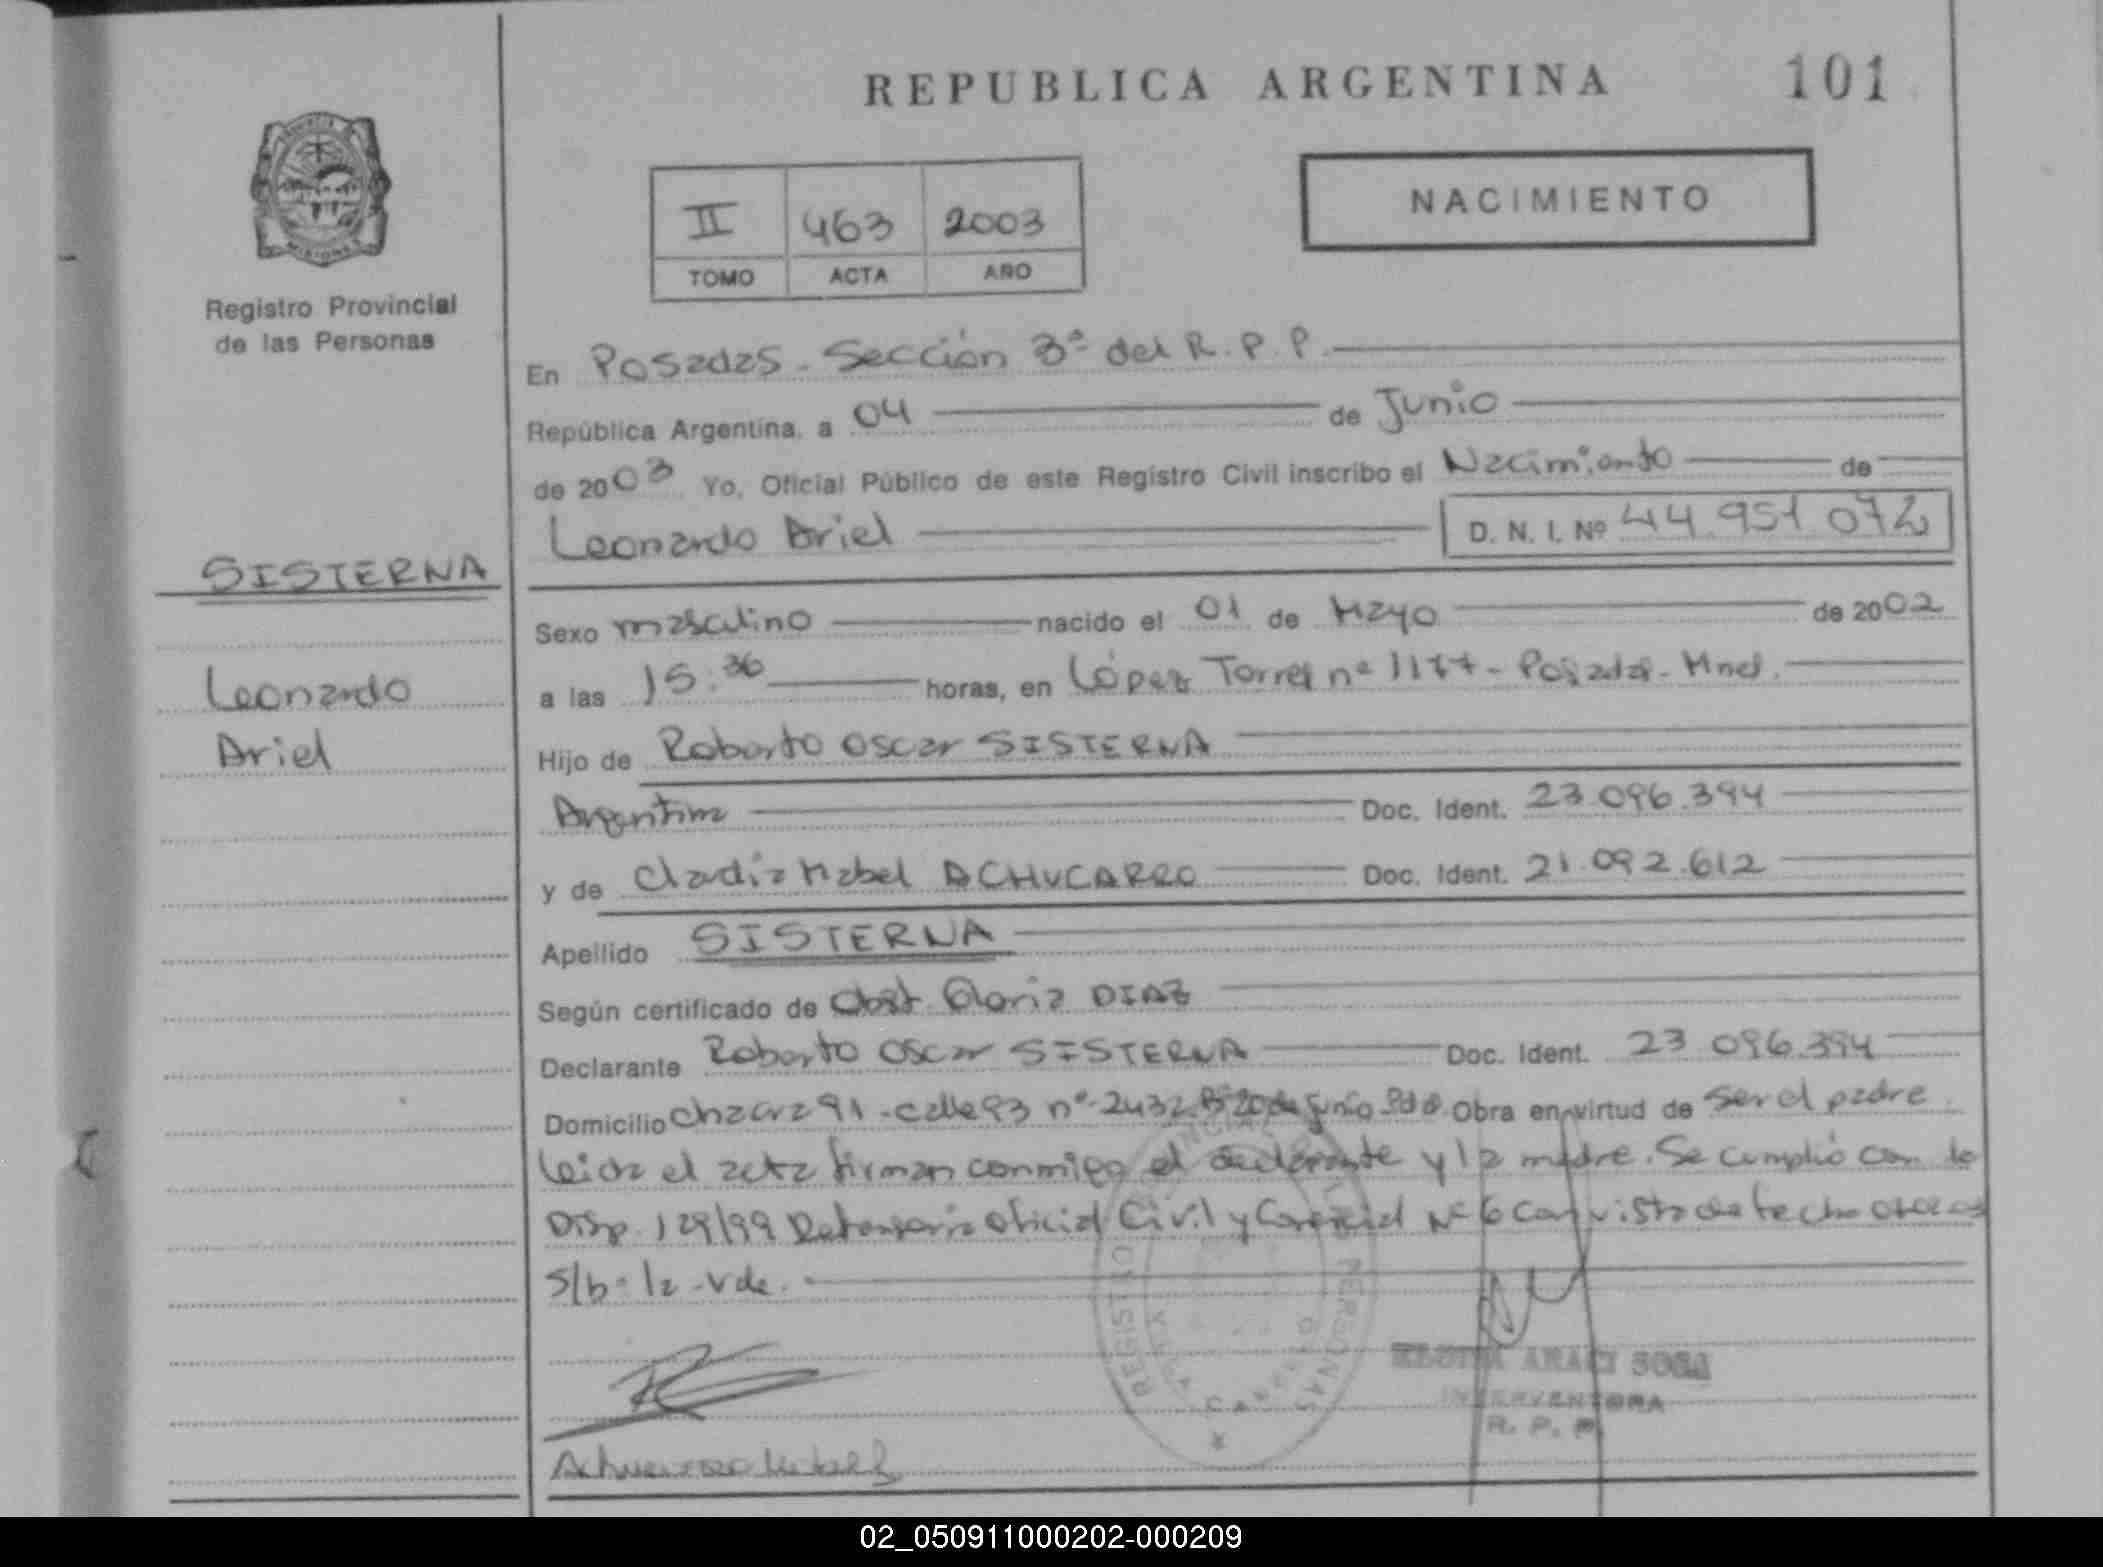 REPUBLICA ARGENTINA 101
NACIMIENTO
II 463 2003
TOMO ACTA AÑO
Registro Provincial
de las Personas
En Posadas - Sección 3ª del R.P.P.
República Argentina, a 04 de Junio
de 2003 Yo, Oficial Público de este Registro Civil inscribo el Nacimiento de
Leonardo Ariel D. N. I. Nº 44.951.072
SISTERNA
Leonardo
Ariel
Sexo masculino nacido el 01 de Mayo de 2002
a las 15:36 horas, en López Torres nº 1177 - Posadas - Mnes.
Hijo de Roberto Oscar SISTERNA
Argentina Doc. Ident. 23.096.394
y de Claudia Mabel ACHUCARRO Doc. Ident. 21.092.612
Apellido SISTERNA
Según certificado de Obst. Gloria DIAZ
Declarante Roberto Oscar SISTERNA Doc. Ident. 23.096.394
Domicilio Chacra 91 - calle 93 nº 2432 Bº 20 de Junio Pdas Obra en virtud de ser el padre
Leida el acta firman conmigo el declarante y la madre. Se cumplió con la
Disp. 129/99 Defensoría Oficial Civil y Comercial Nº 6 con vista de fecha
S/b: la - Vde.
REGISTRO PROVINCIAL DE LAS PERSONAS
ARACY SOSA
INTERVENTORA
R. P. P.
Achucarro Mabel
02_050911000202-000209